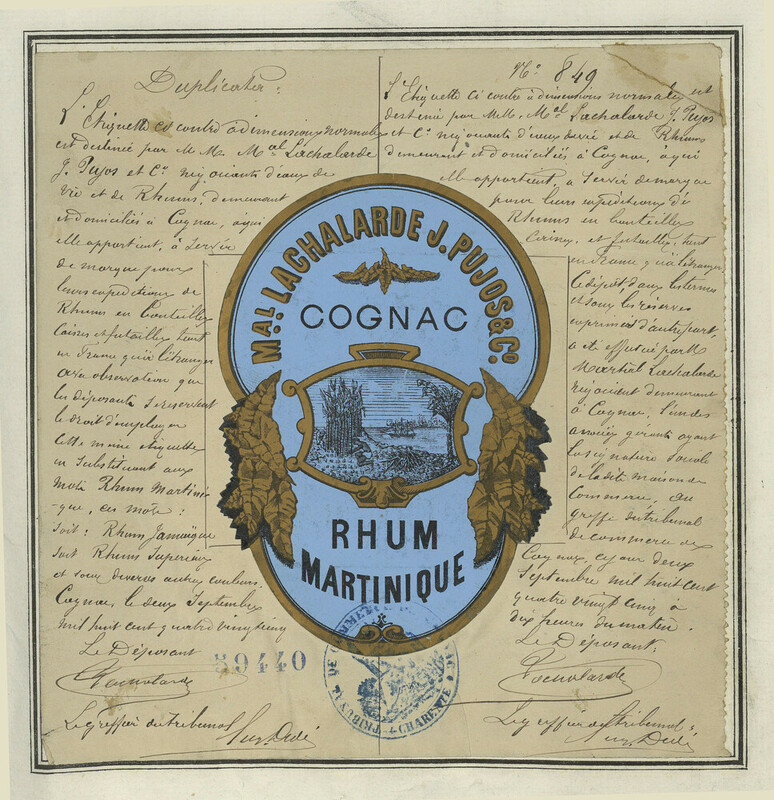 Duplicata :
L'Etiquette ci contre a dimensions normales
est destinée par M. M. Mal Lachalarde
J. Pujos et Cie négociants d'eaux de
Vie et de Rhums, demeurant
et domiciliés à Cognac, à qui
elle appartient, à servir
de marque pour
leurs expéditions de
Rhums en bouteilles
caisses et futailles tant
en France qu'à l'étranger
avec observation que
les déposants se réservent
le droit d'employer
cette même étiquette
en substituant aux
mots Rhum Martini-
-que, ces mots :
soit : Rhum Jamaïque
soit Rhum Supérieur
et sous diverses autres couleurs.
Cognac, le deux Septembre
mil huit cent quatre vingt cinq
Le Déposant
Lachalarde
39440
Le greffier du tribunal
No 849
L'Etiquette ci contre à dimensions normales est
destinée par Mrs Mal Lachalarde J. Pujos
et Cie négociants d'eaux de vie et de Rhums
demeurant et domiciliés à Cognac, à qui
elle appartient, à servir de marque
pour leurs expéditions de
Rhums en bouteilles
caisses, et futailles, tant
en France qu'à l'étranger
Ce dépôt, dans les termes
et sous les réserves
exprimés d'autre part,
a été effectué par M.
Martial Lachalarde
négociant demeurant
à Cognac, l'un des
associés gérants ayant
la signature sociale
de la dite maison de
Commerce, au
greffe du tribunal
de commerce de
Cognac, ce jour deux
Septembre mil huit cent
quatre vingt cinq à
dix heures du matin.
Le Déposant :
Lachalarde
Le greffier du tribunal :
MAL. LACHALARDE J. PUJOS & Co.
COGNAC
RHUM
MARTINIQUE
TRIBUNAL DE COMMERCE
CHARENTE